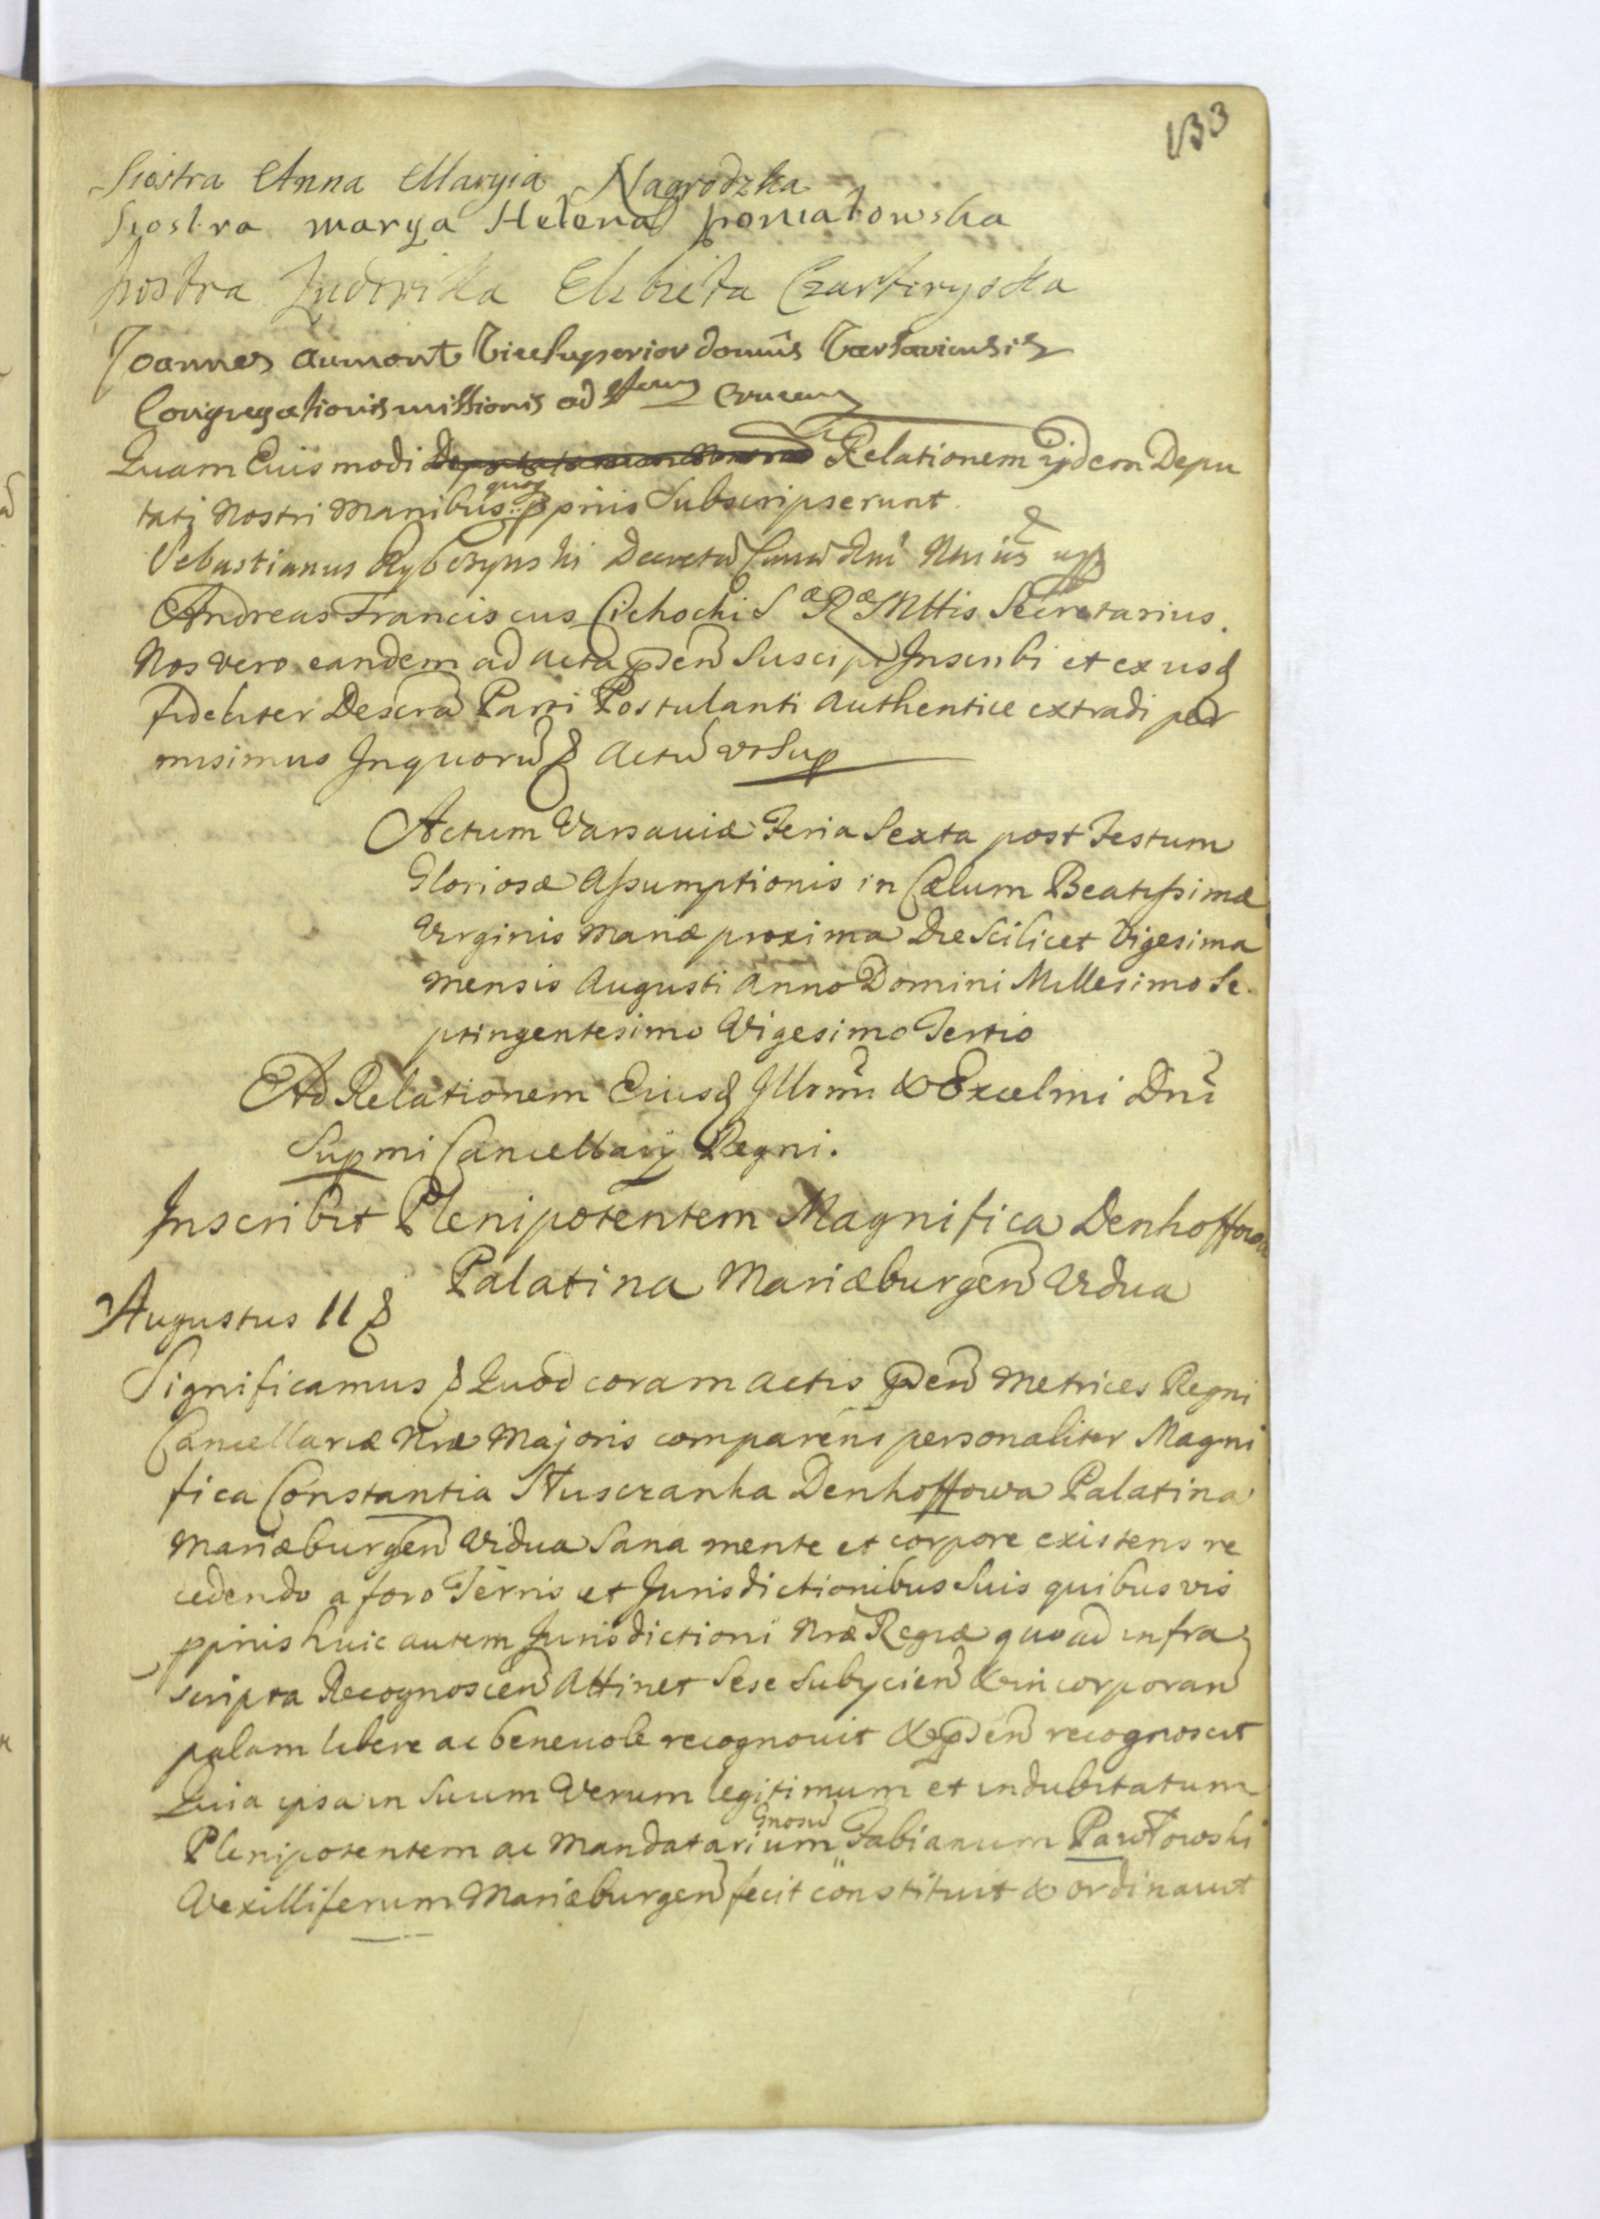 133
Siostra Anna Maryia Nagrodzka
Siostra marya Helena poniatowska
Siostra Ludwika Elzbieta Czartoryska
Joannes Aumont ViceSuperior domus Varsaviensis
Congregationis missionis ad Stam Crucem
Quam Eius modi Relationem ijdem Depu
tati Nostri Manibus quoq pprijs Subscripserunt
Sebastianus Rybczynski Decretor Curiæ Rni Nrius mpp
Andreas Franciscus Cichocki S æ R æ Mttis Secretarius.
Nos vero eandem ad acta pñ Suscipi Inscribi et ex ijsd
fideliter Descrã Parti Postulanti authentice extradi per
misimus In quorũ & actũ ut Sup
Actum Varsaviæ Feria Sexta post Festum
Gloriosæ Assumptionis in Cælum Beatissimæ
Virginis Mariæ proxima Die Scilicet Vigesima
mensis Augusti Anno Domini Millesimo Se
ptingentesimo Vigesimo Tertio
Ad Relationem Eiusd Illrmi & Excelmi Dni
Supmi Cancellarij Regni.
Inscribit Plenipotentem Magnifica Denhoffowa
Palatina Mariæburgen Vidua
Augustus II &
Significamus & Quod coram actis pñ Metrices Regni
Cancellariæ Nræ Majoris comparens personaliter Magni
fica Constantia Słuszanka Denhoffowa Palatina
Mariæburgen Vidua Sana mente et corpore existens re
cedendo a foro Terris et Jurisdictionibus Suis quibus vis
pprijs huic autem Jurisdictioni Nræ Regiæ quo ad infra
scripta Recognoscen Attinet Sese Subyicien & incorporan
palam libere ac benevole recognovit & pñ recognoscit
Quia ipsa in Suum Verum legitimum et indubitatum
Plenipotentem ac Mandatarium Gnosũ Fabianum Pawłowski
Vexilliferum Mariæburgen fecit constituit & ordinavit